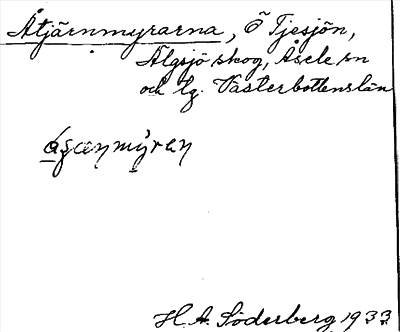 Åtjärnmyrarna, Ö Tjesjön,
Älgsjö skog, Åsele sn
och lg. Västerbottens län
H. A. Söderberg 1933